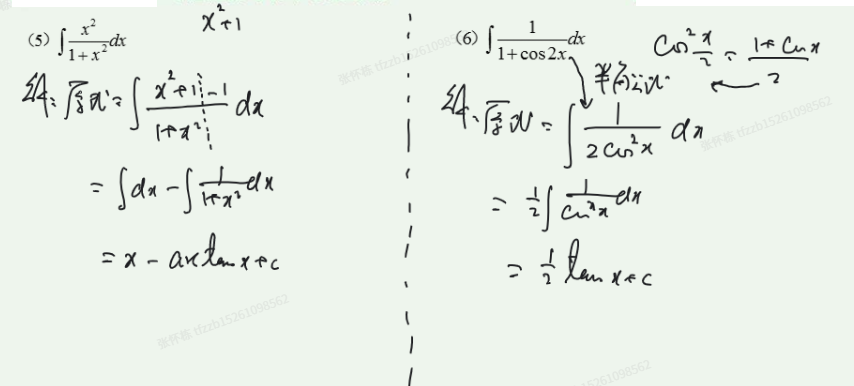 x²+1
(5) ∫ x²/(1+x²) dx
解：原式 = ∫ (x²+1-1)/(1+x²) dx
= ∫dx - ∫ 1/(1+x²) dx
= x - arctan x + c
(6) ∫ 1/(1+cos2x) dx
cos² x/2 = (1+cos x)/2
半角公式
解：原式 = ∫ 1/(2cos²x) dx
= 1/2 ∫ 1/cos²x dx
= 1/2 tan x + c
张怀慈 tfzzb15261098562
张怀慈 tfzzb15261098562
张怀慈 tfzzb15261098562
tfzzb15261098562